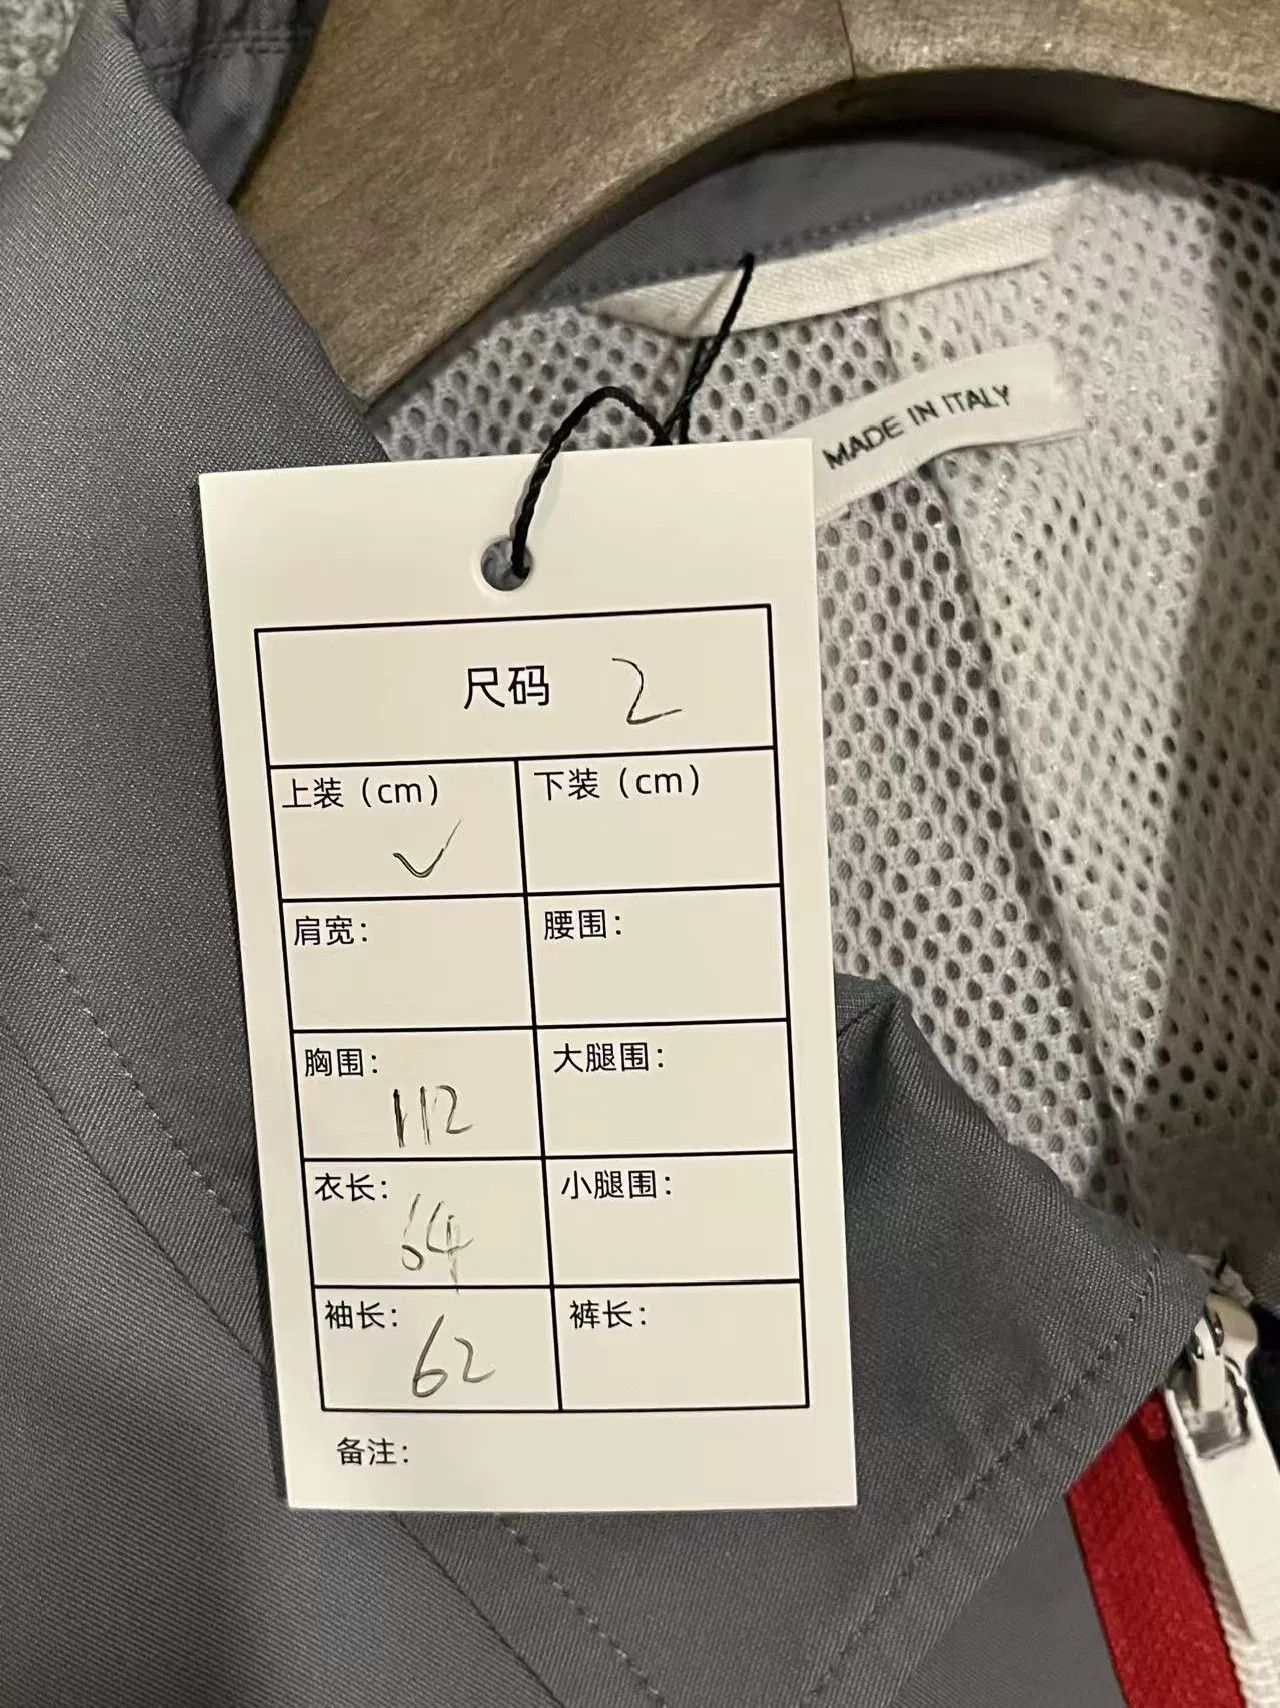 MADE IN ITALY
尺码 2
上装（cm） ✓ 下装（cm）
肩宽： 腰围：
胸围： 112 大腿围：
衣长： 64 小腿围：
袖长： 62 裤长：
备注：